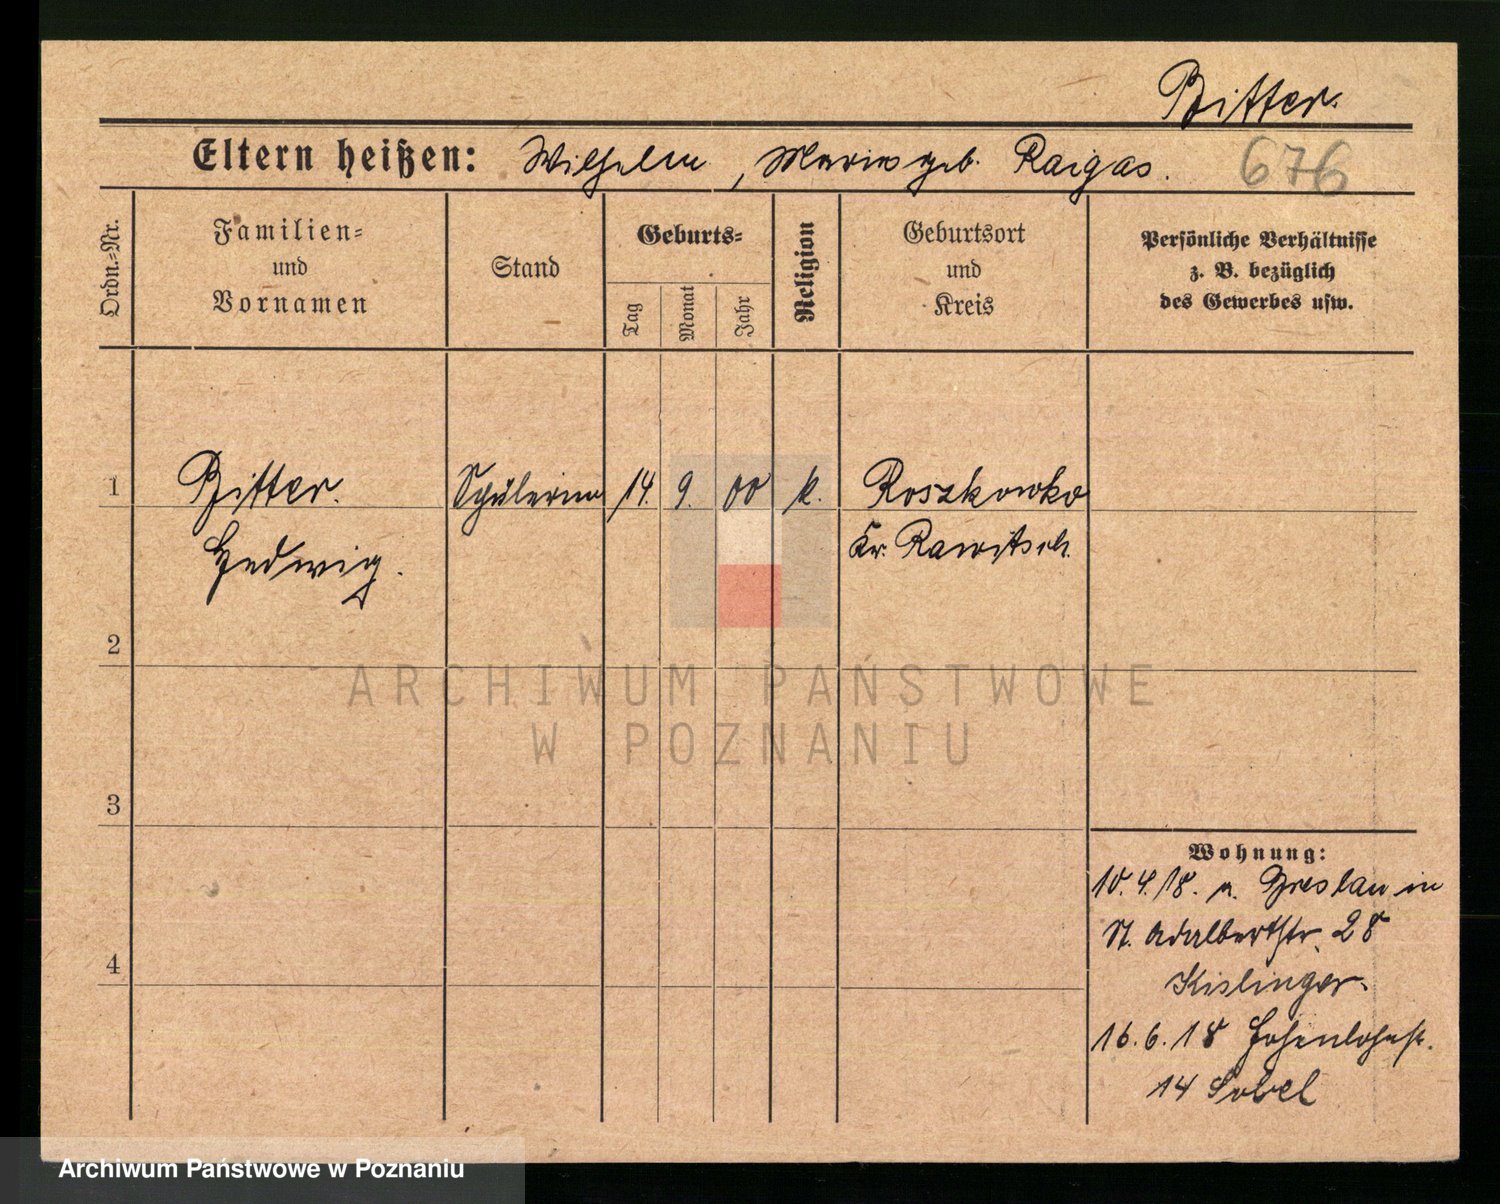 Bitter.
Eltern heißen: Wilhelm, Maria geb. Raigas.
676
Ordn.-Nr.
Familien-
und
Vornamen
Stand
Geburts-
Tag
Monat
Jahr
Religion
Geburtsort
und
Kreis
Persönliche Verhältnisse
z. B. bezüglich
des Gewerbes usw.
1 Bitter. Schülerinn 14. 9. 00 k. Roszkowko
Hedwig. Kr. Rawitsch.
2
3
4
Wohnung:
10.4.18. v. Breslau in
St. Adalbertstr. 28
Kislinger.
16.6.18 Hohenlohest.
14 Sobel
ARCHIWUM PAŃSTWOWE
W POZNANIU
Archiwum Państwowe w Poznaniu